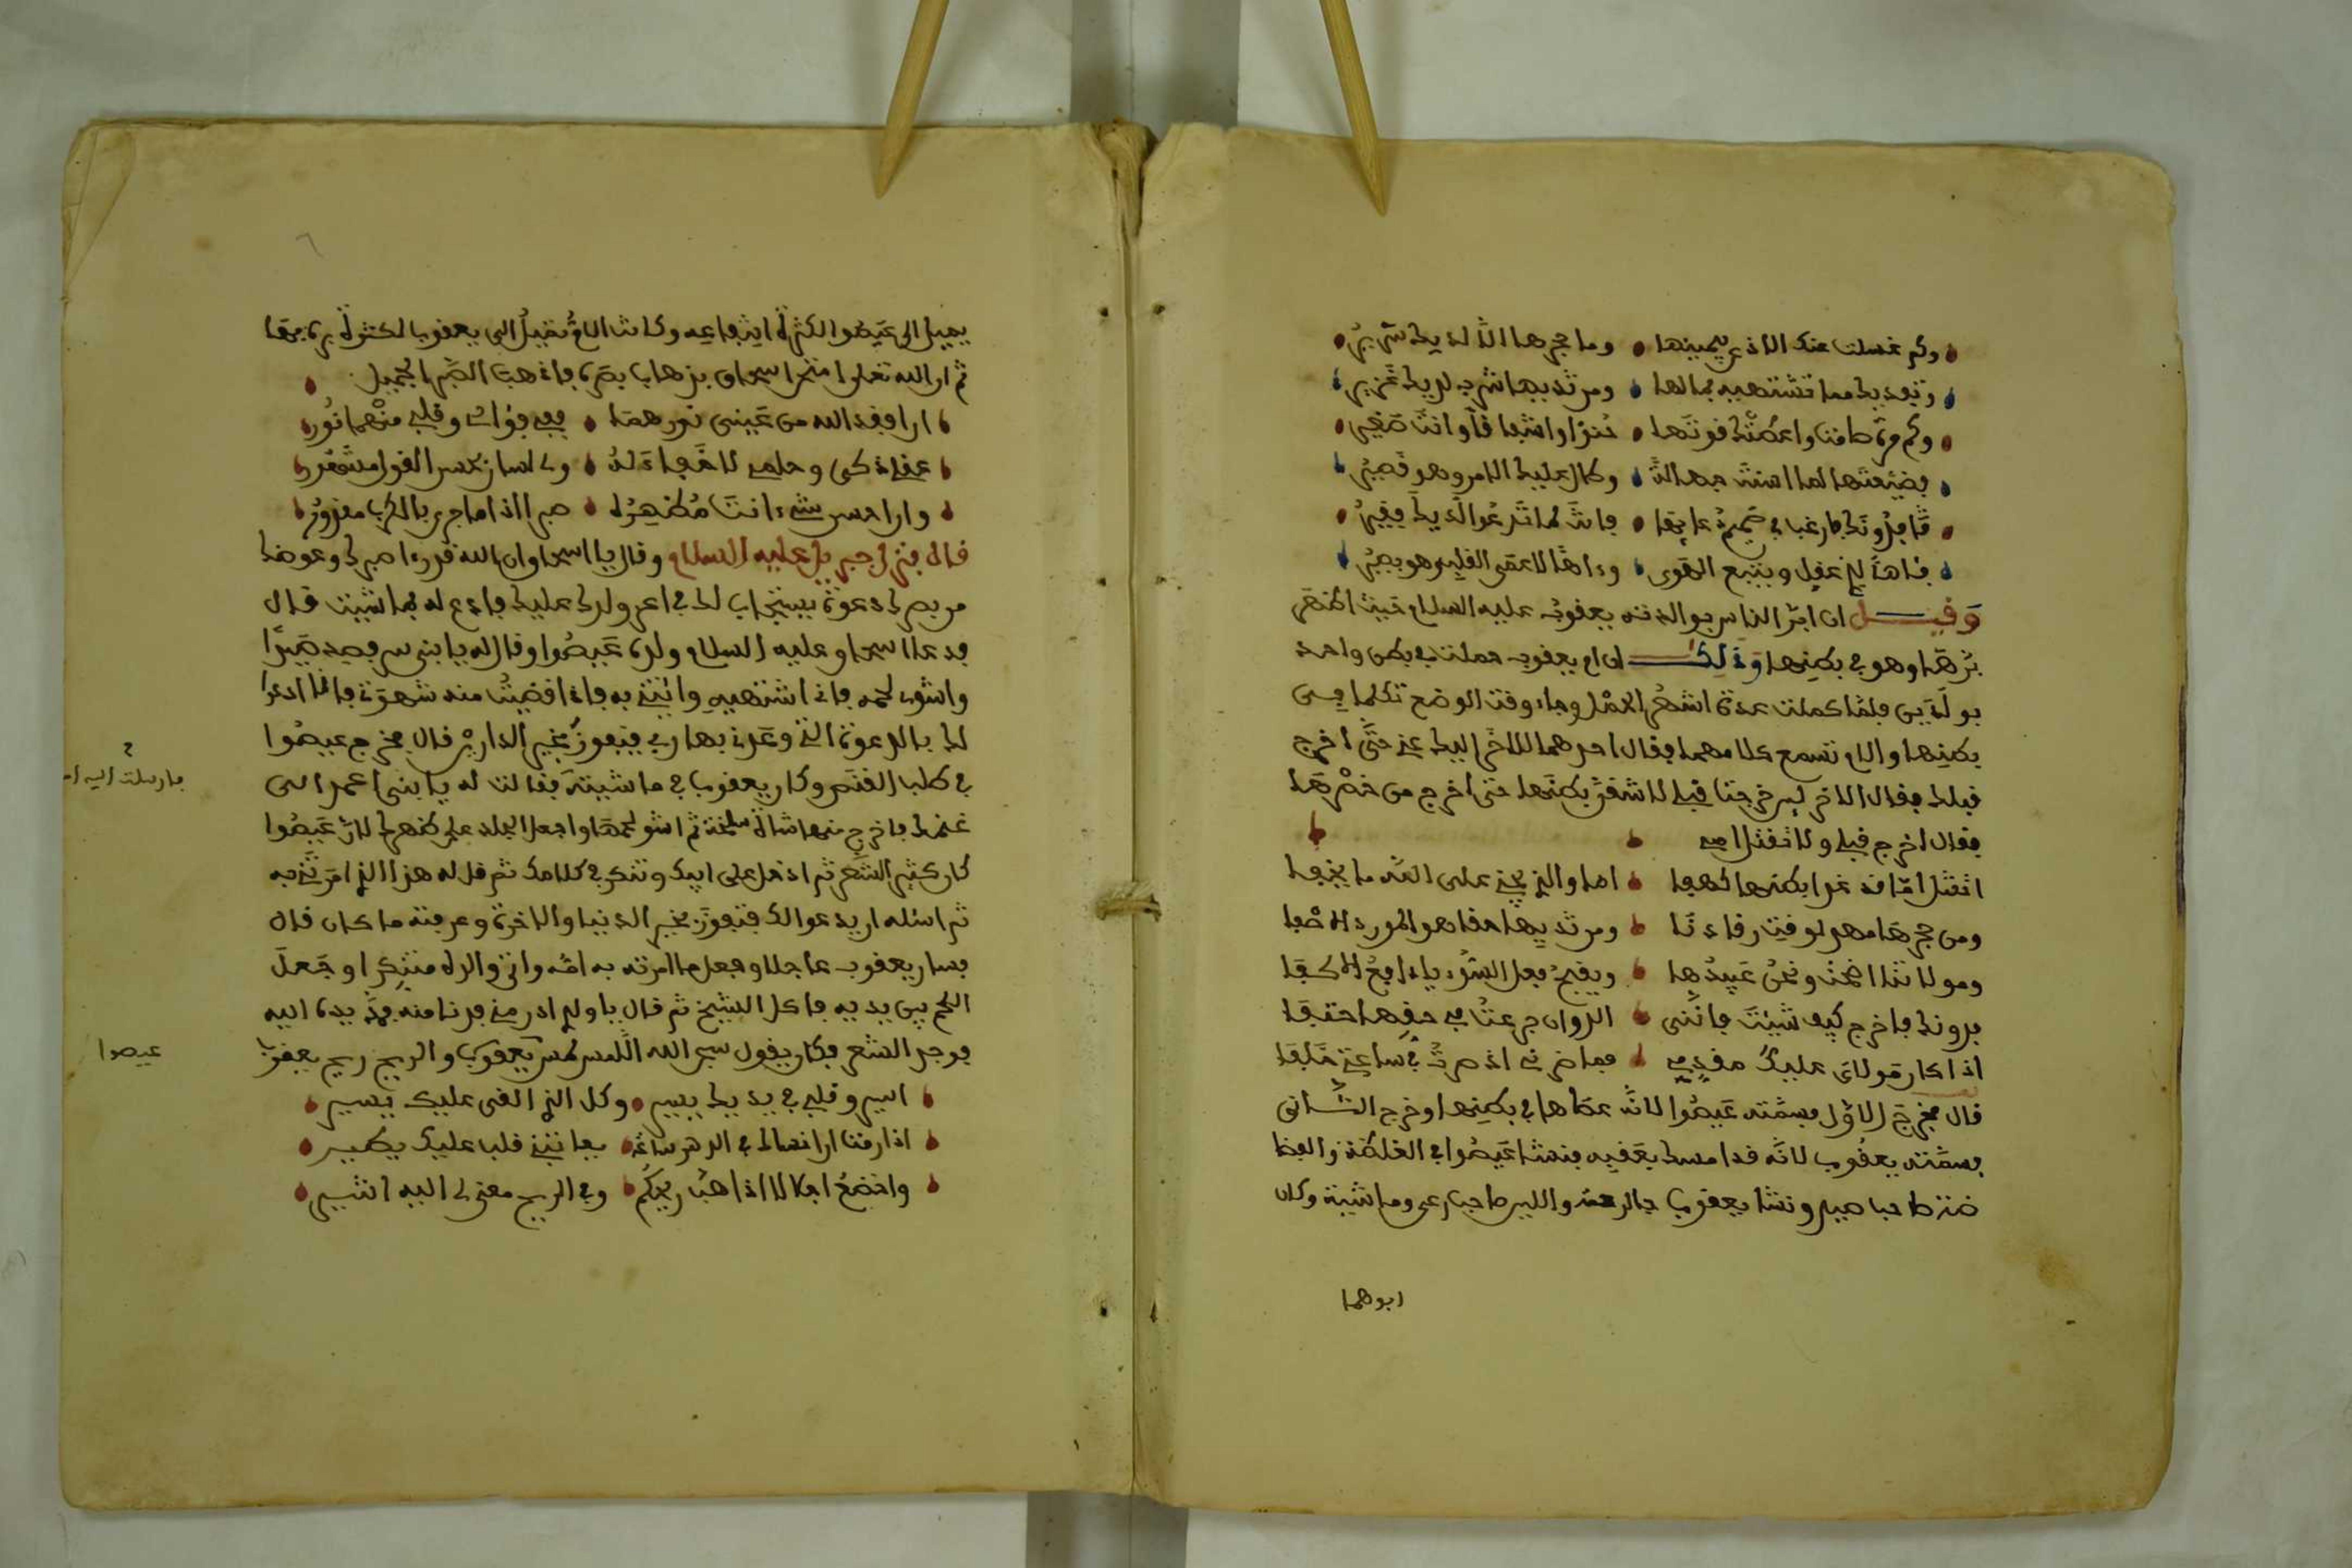 وكم غسلت عنك الاذى بيمينها وما حجرها الا لديك سرير
وتفديك مما تشتهيه بمالها ومن ثديها شرب لديك غزير
وكم مرة جاعت واعطتك قوتها حنوا واشفاقا وانت صغير
فضيعتها لما اسنت جهالة وطال عليك الامر وهو قصير
فدونك فارغب في عميم دعائها فانت لما تدعو اليك فقير
فئاها لذي عقل ويتبع الهوى وءاها لاعمى القلب وهو بصير
وقيل ان ابر الناس بوالدته يعقوب عليه السلام حيث اظهر
برها وهو في بطنها وذلك ان ام يعقوب حملت في بطن واحد
بولدين فلما كملت عدة اشهر الحمل وجاء وقت الوضع تكلما في
بطنها والام تسمع كلامهما فقال احدهما للاخر اليك عني حتى اخرج
قبلك فقال الاخر لين خرجت قبلي لاشقن بطنها حتى اخرج من خصرها
فقال اخرج قبلي ولا تقتل امي
اتقتل اما قد غدا بطنها كهفا اما والذي يجني على العبد ما يخفى
ومن حجرها مهد لوقت رقادنا ومن ثديها حقا هو المورد الاصفا
ومولاتنا اضحت ونحن عبيدها ويقبح فعل السوء يا دافع
فدونك فاخرج كيف شئت فانني
اذا كان مولاي عليك مقدمي فما ضرني اذ صرت في ساعتي خلفا
قال فخرج الاول فسمته عيصوا لانه عصاها في بطنها وخرج الثاني
فسمته يعقوب لانه قد امسك بعقبه فنشا عيصوا في الغلظة والفظا
ضة صاحب صيد ونشا يعقوب بالرحمة واللين صاحب رعي وماشية وكان
ابوهما
يميل الى عيصوا لكثرة انتفاعه وكانت الام تميل الى يعقوب لكثرة بره بها
ثم ان الله تعلى امتحن اسحاق بذهاب بصره فاذهب الصبر الجميل
ان افقد الله من عيني نورهما ففي فؤادي وقلبي منهما نور
عقلي ذكي وحلمي لا خفاء له ولي لسان بحسن القول مشهور
وان احسن شيء انت مظهره صبرا اذا ما جرى بالكرب مقدور
قال فنزل جبريل عليه السلام وقال يا اسحاق ان الله قد رءا صبرك وعوضك
من بصرك دعوة يستجاب لك في اعز ولدك عليك فادع له بما شئت قال
فدعا اسحاق عليه السلام ولده عيصوا وقال له يا بني سر فصد صيدا
واشو لحمه فاني اشتهيه وائتني به فاذا قضيت منه شهوة فانا ادعوا
لك بالدعوة التي وعدني بها ربي فتفوز بخير الدارين قال فخرج عيصوا
في طلب القنص وكان يعقوب في ماشيته فقالت له يا بني اعمد الى
غنمك فاخرج منها شاة سلخت ثم اشو لحمها واجعل الجلد على ظهرك لان عيصوا
كان كثير الشعر ثم ادخل على ابيك وتنكر في كلامك ثم قل له هذا الذي امرتني به
ثم اسئله ان يدعوا لك فتفوز بخير الدنيا والاخرة وعرفته ما كان قال
فسار يعقوب عاجلا وفعل ما امرته به امه واتى والده متنكرا وجعل
اللحم بين يديه فاكل الشيخ ثم قال يا ولدي ادن مني فدنا منه فمد يده اليه
فوجد الشعر فكان يقول سبحان الله اللمس لمس يعقوب والريح ريح يعقوب
اسير وقلبي في يديك يسير وكل الذي القى عليك يسير
اذا رمت ان انساك في الدهر ساعة يعاتبني قلب عليك يطير
واخضع اجلالا اذا هب ريحكم وفي الريح معنى لي اليه اشير
فارسلت اليه امه
عيصوا